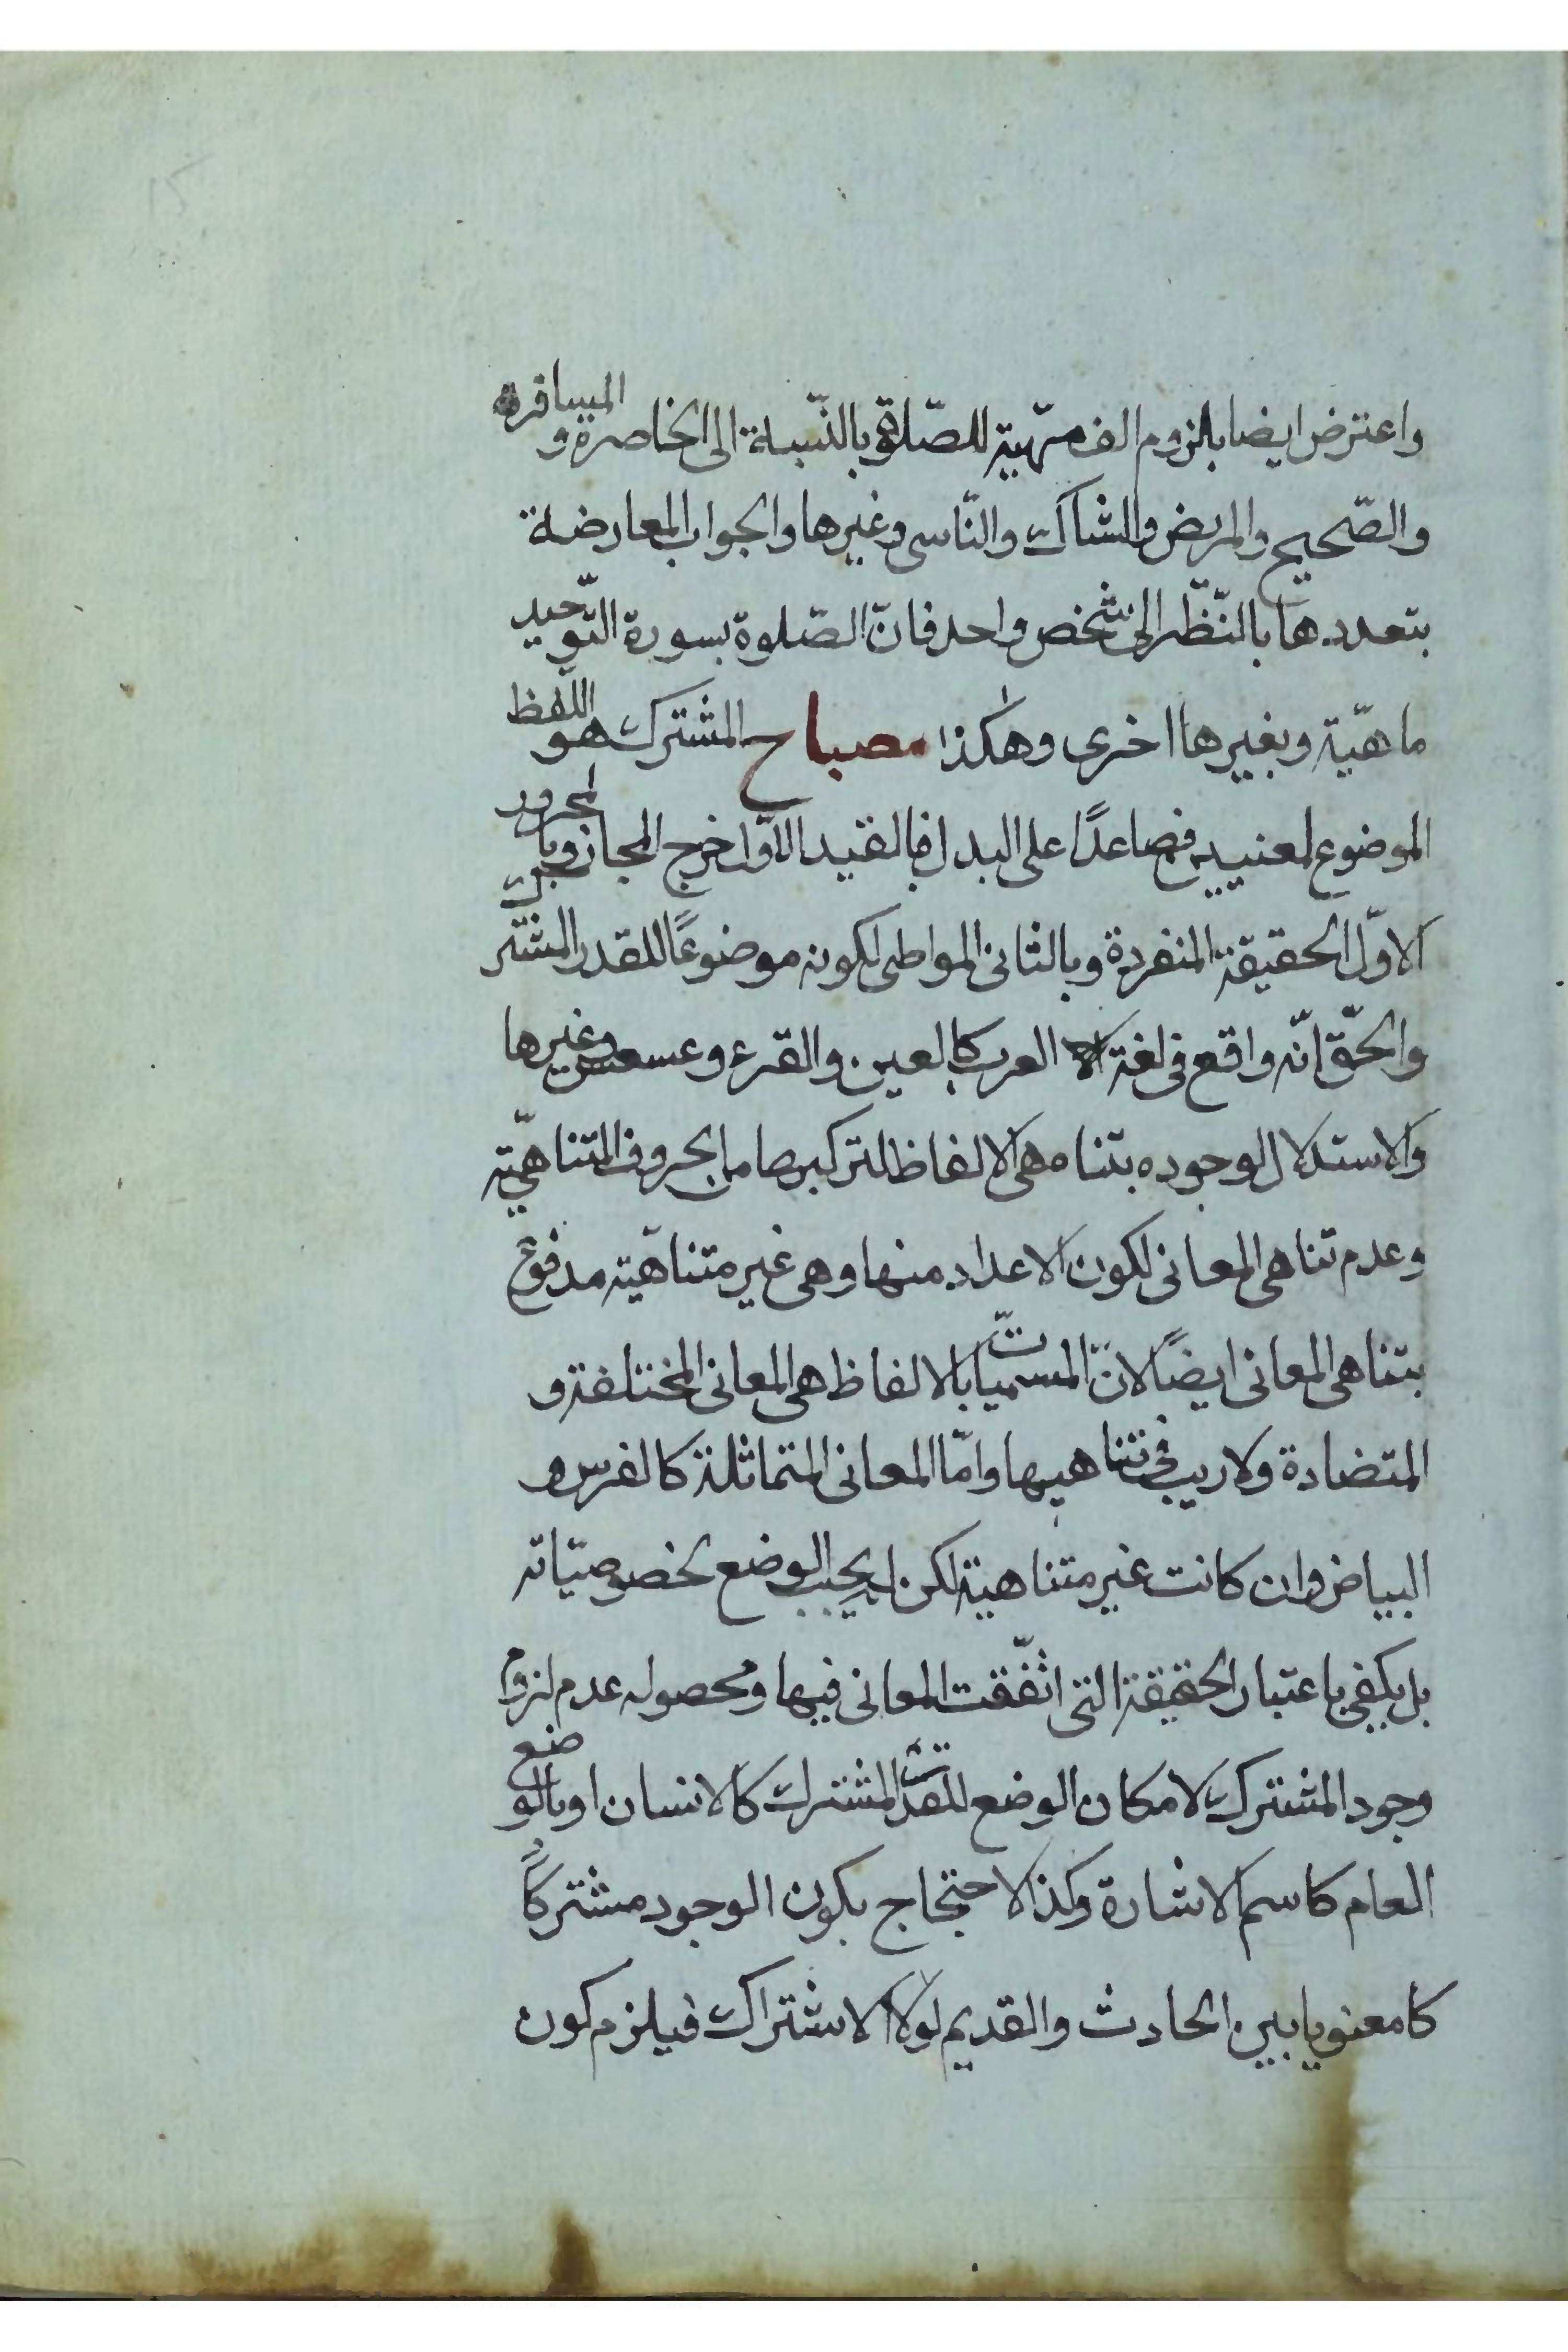 واعترض ايضا بلزوم الف مهية للصّلوة بالنّسبة الى الحاضرة والمسافرة
والصّحيح والمريض والشاك والنّاسى وغيرها والجواب المعارضة
بتعددها بالنّظر الى شخص واحد فانّ الصّلوة بسورة التّوحيد
ماهيّة وبغيرها اخرى وهكذا مصباح المشترك هو اللّفظ
الموضوع لمعنيين فصاعدًا على البدل فبالقيد الاوّل خرج المجاز وبالمجرور
الاوّل الحقيقة المنفردة وبالثانى المواطى لكونه موضوعًا للقدر المشترك
والحقّ انّه واقع فى لغة العرب كالعين والقرء وعسعس وغيرها
والاستدلال لوجوده بتناهى الالفاظ لتركبها من الحروف المتناهيّة
وعدم تناهى المعانى لكون الاعداد منها وهى غير متناهّية مدفوع
بتناهى المعانى ايضًا لانّ المسمّيات بالالفاظ هى المعانى المختلفة و
المتضادة ولا ريب فى تناهيها وامّا المعانى المتماثلة كالفرس و
البياض وان كانت غير متناهية لكن لا يجب الوضع لخصوصيّاته
بل يكفى باعتبار الحقيقة التى اتّفقت المعانى فيها ومحصوله عدم لزوم
وجود المشترك لامكان الوضع للقدر المشترك كالانسان او بالوضع
العام كاسم الاشارة وكذا الاحتجاج بكون الوجود مشتركًا
كا معنويا بين الحادث والقديم لولا الاشتراك فيلزم كون